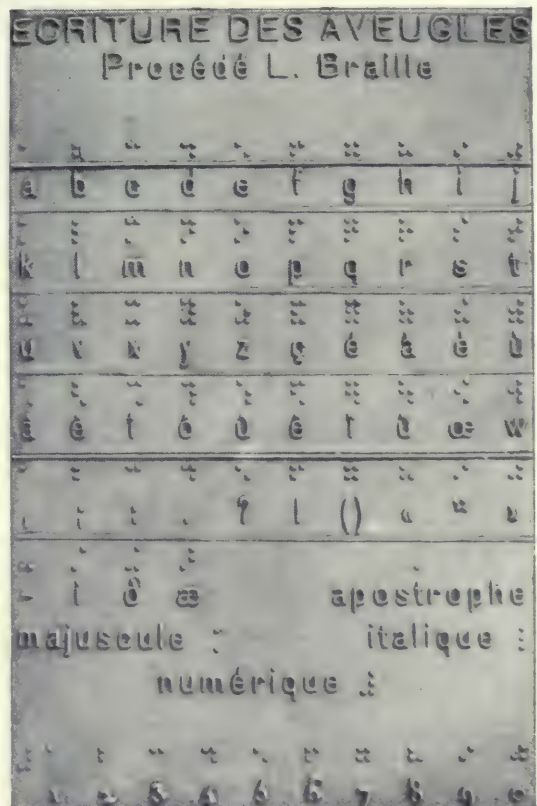 ECRITURE DES AVEUGLES
Procédé L. Braille
a b c d e f g h i j
k l m n o p q r s t
u v x y z ç é à è ù
â ê î ô û ë ï ü œ w
, ; : . ? ! () « * »
æ apostrophe
majuscule italique
numérique
1 2 3 4 5 6 7 8 9 0